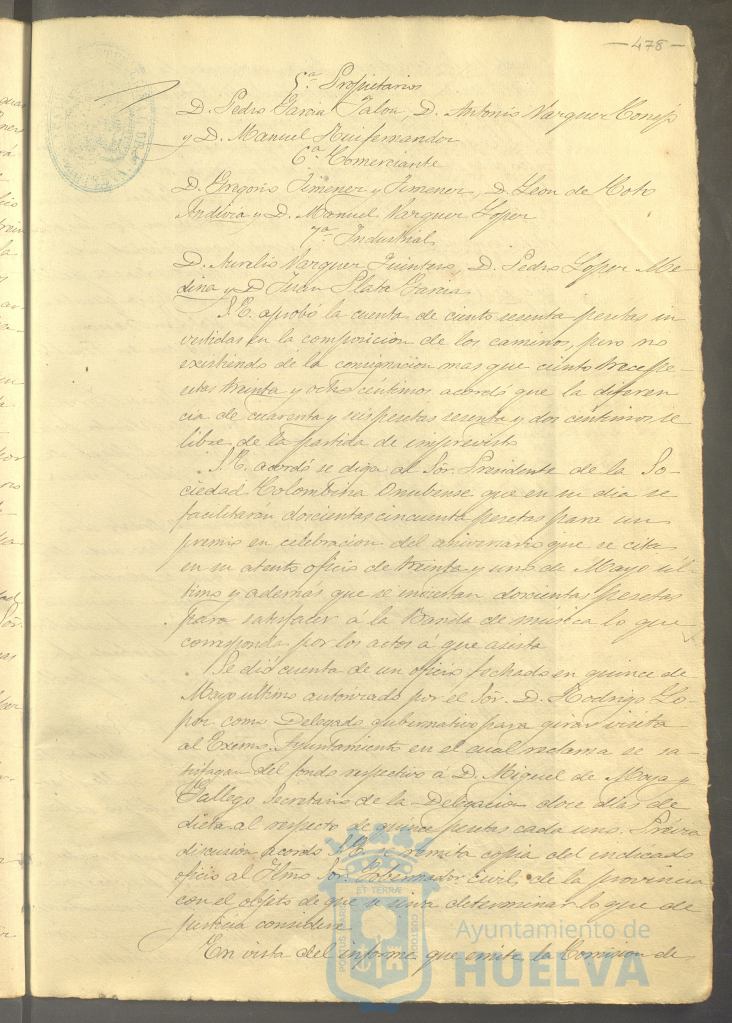 —478—
5ª Propietarios
D. Pedro Garcia Jalon, D. Antonio Vazquez
y D. Manuel Ruifernandez
6ª Comerciante
D. Gregorio Jimenez y Jimenez, D. Leon de
y D. Manuel Vazquez Lopez
7ª Industrial
D. Aurelio Vazquez Quintero, D. Pedro Lopez Me-
dina y D Juan Plata Garcia
S.E. aprobó la cuenta de ciento sesenta pesetas in
vertidas en la composicion de los caminos, pero no
existiendo de la consignacion mas que ciento trece pe-
setas treinta y ocho céntimos acordó que la diferen
cia de cuarenta y seis pesetas sesenta y dos centimos se
libre de la partida de imprevisto
S.E. acordó se diga al Sor. Presidente de la So-
ciedad Colombina Onubense que en su dia se
facilitarán doscientas cincuenta pesetas para un
premio en celebracion del aniversario que se cita
en su atento oficio de treinta y uno de Mayo úl-
timo y además que se inviertan doscientas pesetas
para satisfacer á la Banda de música lo que
corresponda por los actos á que asista
Se dió cuenta de un oficio fechado en quince de
Mayo ultimo autorizado por el Sor. D. Rodrigo Lo-
pez como Delegado gubernativo para girar visita
al Excmo. Ayuntamiento en el cual reclama se sa-
tisfagan del fondo respectivo á D. Miguel de Moya y
Gallego Secretario de la Delegacion doce dias de
dieta al respecto de quince pesetas cada uno. Prévia
discusion acordó S.E. se remita copia del indicado
oficio al Ilmo Sor. Gobernador Civil, de la provincia
con el objeto de que se sirva determinar lo que de
justicia considere
En vista del informe que emite la Comision de
PORTUS MARIS ET TERRAE CUSTODIA
Ayuntamiento de
HUELVA